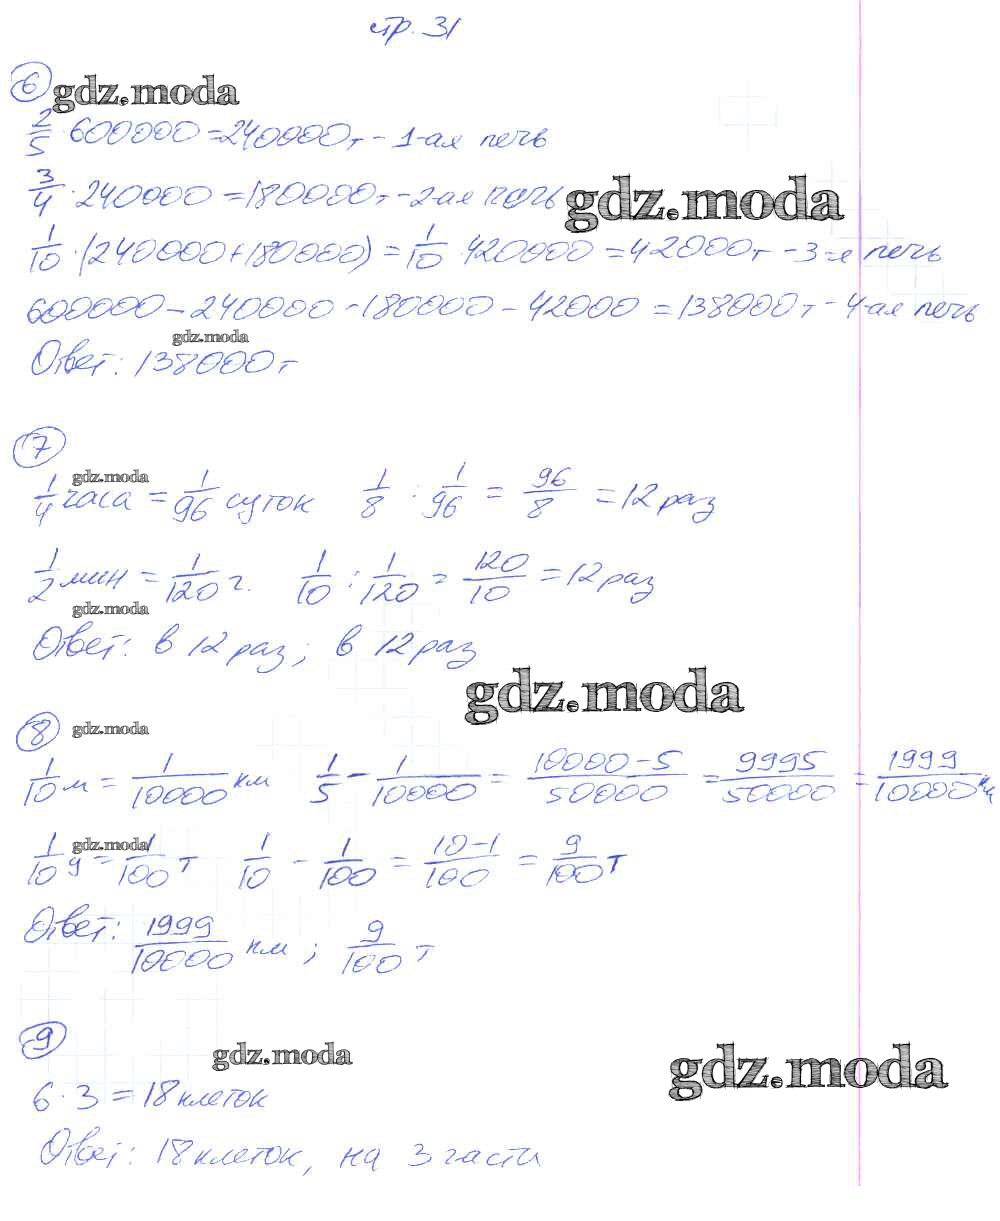 стр. 31
6 gdz.moda
2/5 · 600000 = 240000т - 1-ая печь
3/4 · 240000 = 180000т - 2-ая печь
gdz.moda
1/10 · (240000 + 180000) = 1/10 · 420000 = 42000т - 3-я печь
600000 - 240000 - 180000 - 42000 = 138000т - 4-ая печь
gdz.moda
Ответ: 138000т
7
gdz.moda
1/4 часа = 1/96 суток 1/8 : 1/96 = 96/8 = 12 раз
1/2 мин = 1/120 ч. 1/10 : 1/120 = 120/10 = 12 раз
gdz.moda
Ответ: в 12 раз; в 12 раз
gdz.moda
8 gdz.moda
1/10 м = 1/10000 км 1/5 - 1/10000 = 10000 - 5/50000 = 9995/50000 = 1999/10000 км
gdz.moda
1/10 ц = 1/100 т 1/10 - 1/100 = 10 - 1/100 = 9/100 т
Ответ: 1999/10000 км; 9/100 т
9
gdz.moda
gdz.moda
6 · 3 = 18 клеток
Ответ: 18 клеток, на 3 части